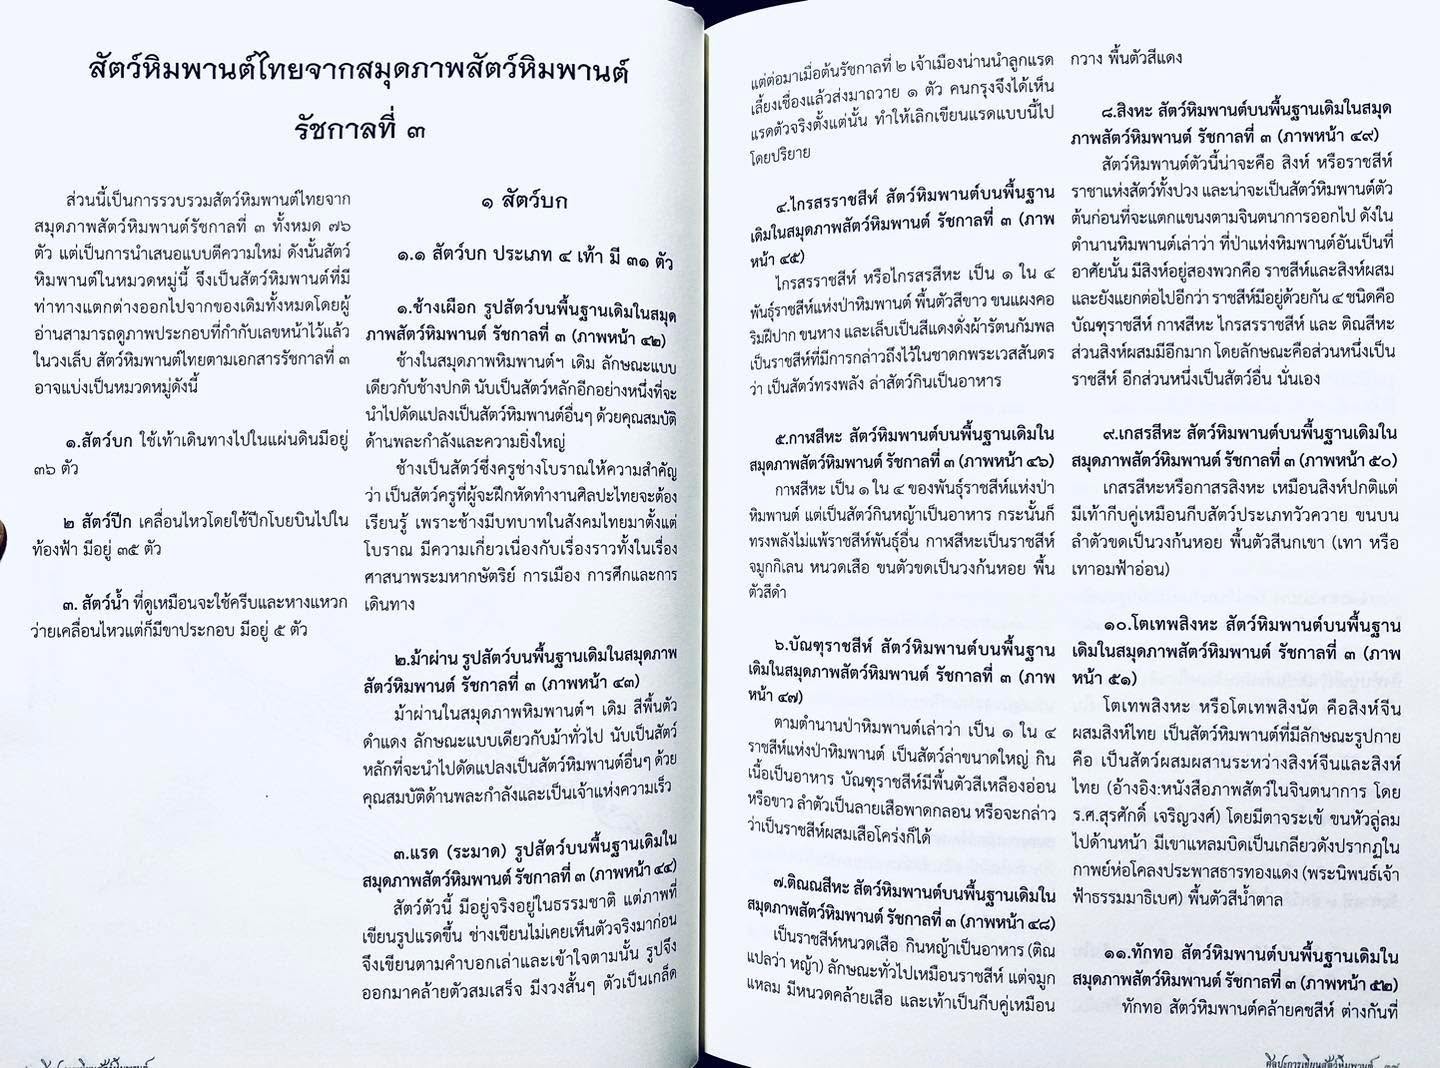 สัตว์หิมพานต์ไทยจากสมุดภาพสัตว์หิมพานต์
รัชกาลที่ ๓
ส่วนนี้เป็นการรวบรวมสัตว์หิมพานต์ไทยจาก
สมุดภาพสัตว์หิมพานต์รัชกาลที่ ๓ ทั้งหมด ๗๖
ตัว แต่เป็นการนำเสนอแบบตีความใหม่ ดังนั้นสัตว์
หิมพานต์ในหมวดหมู่นี้ จึงเป็นสัตว์หิมพานต์ที่มี
ท่าทางแตกต่างออกไปจากของเดิมทั้งหมดโดยผู้
อ่านสามารถดูภาพประกอบที่กำกับเลขหน้าไว้แล้ว
ในวงเล็บ สัตว์หิมพานต์ไทยตามเอกสารรัชกาลที่ ๓
อาจแบ่งเป็นหมวดหมู่ดังนี้
๑.สัตว์บก ใช้เท้าเดินทางไปในแผ่นดินมีอยู่
๓๖ ตัว
๒ สัตว์ปีก เคลื่อนไหวโดยใช้ปีกโบยบินไปใน
ท้องฟ้า มีอยู่ ๓๕ ตัว
๓. สัตว์น้ำ ที่ดูเหมือนจะใช้ครีบและหางแหวก
ว่ายเคลื่อนไหวแต่ก็มีขาประกอบ มีอยู่ ๕ ตัว
๑ สัตว์บก
๑.๑ สัตว์บก ประเภท ๔ เท้า มี ๓๑ ตัว
๑.ช้างเผือก รูปสัตว์บนพื้นฐานเดิมในสมุด
ภาพสัตว์หิมพานต์ รัชกาลที่ ๓ (ภาพหน้า ๔๒)
ช้างในสมุดภาพหิมพานต์ฯ เดิม ลักษณะแบบ
เดียวกับช้างปกติ นับเป็นสัตว์หลักอีกอย่างหนึ่งที่จะ
นำไปดัดแปลงเป็นสัตว์หิมพานต์อื่นๆ ด้วยคุณสมบัติ
ด้านพละกำลังและความยิ่งใหญ่
ช้างเป็นสัตว์ซึ่งครูช่างโบราณให้ความสำคัญ
ว่า เป็นสัตว์ครูที่ผู้จะฝึกหัดทำงานศิลปะไทยจะต้อง
เรียนรู้ เพราะช้างมีบทบาทในสังคมไทยมาตั้งแต่
โบราณ มีความเกี่ยวเนื่องกับเรื่องราวทั้งในเรื่อง
ศาสนาพระมหากษัตริย์ การเมือง การศึกและการ
เดินทาง
๒.ม้าผ่าน รูปสัตว์บนพื้นฐานเดิมในสมุดภาพ
สัตว์หิมพานต์ รัชกาลที่ ๓ (ภาพหน้า ๔๓)
ม้าผ่านในสมุดภาพหิมพานต์ฯ เดิม สีพื้นตัว
ดำแดง ลักษณะแบบเดียวกับม้าทั่วไป นับเป็นสัตว์
หลักที่จะนำไปดัดแปลงเป็นสัตว์หิมพานต์อื่นๆ ด้วย
คุณสมบัติด้านพละกำลังและเป็นเจ้าแห่งความเร็ว
๓.แรด (ระมาด) รูปสัตว์บนพื้นฐานเดิมใน
สมุดภาพสัตว์หิมพานต์ รัชกาลที่ ๓ (ภาพหน้า ๔๔)
สัตว์ตัวนี้ มีอยู่จริงอยู่ในธรรมชาติ แต่ภาพที่
เขียนรูปแรดขึ้น ช่างเขียนไม่เคยเห็นตัวจริงมาก่อน
จึงเขียนตามคำบอกเล่าและเข้าใจตามนั้น รูปจึง
ออกมาคล้ายตัวสมเสร็จ มีงวงสั้นๆ ตัวเป็นเกล็ด
แต่ต่อมาเมื่อต้นรัชกาลที่ ๒ เจ้าเมืองน่านนำลูกแรด
เลี้ยงเชื่องแล้วส่งมาถวาย ๑ ตัว คนกรุงจึงได้เห็น
แรดตัวจริงตั้งแต่นั้น ทำให้เลิกเขียนแรดแบบนี้ไป
โดยปริยาย
๔.ไกรสรราชสีห์ สัตว์หิมพานต์บนพื้นฐาน
เดิมในสมุดภาพสัตว์หิมพานต์ รัชกาลที่ ๓ (ภาพ
หน้า ๔๕)
ไกรสรราชสีห์ หรือไกรสรสีหะ เป็น ๑ ใน ๔
พันธุ์ราชสีห์แห่งป่าหิมพานต์ พื้นตัวสีขาว ขนแผงคอ
ริมฝีปาก ขนหาง และเล็บเป็นสีแดงดั่งผ้ารัตนกัมพล
เป็นราชสีห์ที่มีการกล่าวถึงไว้ในชาดกพระเวสสันดร
ว่า เป็นสัตว์ทรงพลัง ล่าสัตว์กินเป็นอาหาร
๕.กาฬสีหะ สัตว์หิมพานต์บนพื้นฐานเดิมใน
สมุดภาพสัตว์หิมพานต์ รัชกาลที่ ๓ (ภาพหน้า ๔๖)
กาฬสีหะ เป็น ๑ ใน ๔ ของพันธุ์ราชสีห์แห่งป่า
หิมพานต์ แต่เป็นสัตว์กินหญ้าเป็นอาหาร กระนั้นก็
ทรงพลังไม่แพ้ราชสีห์พันธุ์อื่น กาฬสีหะเป็นราชสีห์
จมูกกิเลน หนวดเสือ ขนตัวขดเป็นวงก้นหอย พื้น
ตัวสีดำ
๖.บัณฑุราชสีห์ สัตว์หิมพานต์บนพื้นฐาน
เดิมในสมุดภาพสัตว์หิมพานต์ รัชกาลที่ ๓ (ภาพ
หน้า ๔๗)
ตามตำนานป่าหิมพานต์เล่าว่า เป็น ๑ ใน ๔
ราชสีห์แห่งป่าหิมพานต์ เป็นสัตว์ล่าขนาดใหญ่ กิน
เนื้อเป็นอาหาร บัณฑุราชสีห์มีพื้นตัวสีเหลืองอ่อน
หรือขาว ลำตัวเป็นลายเสือพาดกลอน หรือจะกล่าว
ว่าเป็นราชสีห์ผสมเสือโคร่งก็ได้
๗.ติณณสีหะ สัตว์หิมพานต์บนพื้นฐานเดิมใน
สมุดภาพสัตว์หิมพานต์ รัชกาลที่ ๓ (ภาพหน้า ๔๘)
เป็นราชสีห์หนวดเสือ กินหญ้าเป็นอาหาร (ติณ
แปลว่า หญ้า) ลักษณะทั่วไปเหมือนราชสีห์ แต่จมูก
แหลม มีหนวดคล้ายเสือ และเท้าเป็นกีบคู่เหมือน
กวาง พื้นตัวสีแดง
๘.สิงหะ สัตว์หิมพานต์บนพื้นฐานเดิมในสมุด
ภาพสัตว์หิมพานต์ รัชกาลที่ ๓ (ภาพหน้า ๔๙)
สัตว์หิมพานต์ตัวนี้น่าจะคือ สิงห์ หรือราชสีห์
ราชาแห่งสัตว์ทั้งปวง และน่าจะเป็นสัตว์หิมพานต์ตัว
ต้นก่อนที่จะแตกแขนงตามจินตนาการออกไป ดังใน
ตำนานหิมพานต์เล่าว่า ที่ป่าแห่งหิมพานต์อันเป็นที่
อาศัยนั้น มีสิงห์อยู่สองพวกคือ ราชสีห์และสิงห์ผสม
และยังแยกต่อไปอีกว่า ราชสีห์มีอยู่ด้วยกัน ๔ ชนิดคือ
บัณฑุราชสีห์ กาฬสีหะ ไกรสรราชสีห์ และ ติณสีหะ
ส่วนสิงห์ผสมมีอีกมาก โดยลักษณะคือส่วนหนึ่งเป็น
ราชสีห์ อีกส่วนหนึ่งเป็นสัตว์อื่น นั่นเอง
๙.เกสรสีหะ สัตว์หิมพานต์บนพื้นฐานเดิมใน
สมุดภาพสัตว์หิมพานต์ รัชกาลที่ ๓ (ภาพหน้า ๕๐)
เกสรสีหะหรือกาสรสิงหะ เหมือนสิงห์ปกติแต่
มีเท้ากีบคู่เหมือนกีบสัตว์ประเภทวัวควาย ขนบน
ลำตัวขดเป็นวงก้นหอย พื้นตัวสีนกเขา (เทา หรือ
เทาอมฟ้าอ่อน)
๑๐.โตเทพสิงหะ สัตว์หิมพานต์บนพื้นฐาน
เดิมในสมุดภาพสัตว์หิมพานต์ รัชกาลที่ ๓ (ภาพ
หน้า ๕๑)
โตเทพสิงหะ หรือโตเทพสิงนัต คือสิงห์จีน
ผสมสิงห์ไทย เป็นสัตว์หิมพานต์ที่มีลักษณะรูปกาย
คือ เป็นสัตว์ผสมผสานระหว่างสิงห์จีนและสิงห์
ไทย (อ้างอิง:หนังสือภาพสัตว์ในจินตนาการ โดย
ร.ศ.สุรศักดิ์ เจริญวงศ์) โดยมีตาจระเข้ ขนหัวลู่ลม
ไปด้านหน้า มีเขาแหลมบิดเป็นเกลียวดังปรากฏใน
กาพย์ห่อโคลงประพาสธารทองแดง (พระนิพนธ์เจ้า
ฟ้าธรรมมาธิเบศ) พื้นตัวสีน้ำตาล
๑๑.ทักทอ สัตว์หิมพานต์บนพื้นฐานเดิมใน
สมุดภาพสัตว์หิมพานต์ รัชกาลที่ ๓ (ภาพหน้า ๕๒)
ทักทอ สัตว์หิมพานต์คล้ายคชสีห์ ต่างกันที่
ศิลปะการเขียนสัตว์หิมพานต์